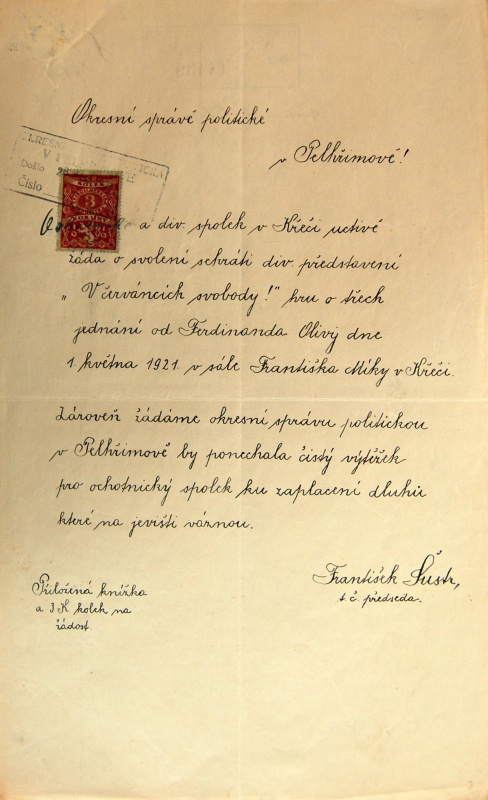 Okresní správě politické
v Pelhřimově!
KOLEK
3
KORUNY
Došlo
Číslo
a div. spolek v Křeči uctivě
žáda o svolení sehráti div. představení
„V červáncích svobody!" hru o třech
jednání od Ferdinanda Olivy dne
1. května 1921. v sále Františka Míky v Křeči.
Zároveň žádáme okresní správu politickou
v Pelhřimově by ponechala čistý výtěžek
pro ochotnický spolek ku zaplacení dluhů
které na jevišti váznou.
František Šustr,
t. č. předseda.
Přiložená knížka
a 3 K kolek na
žádost.